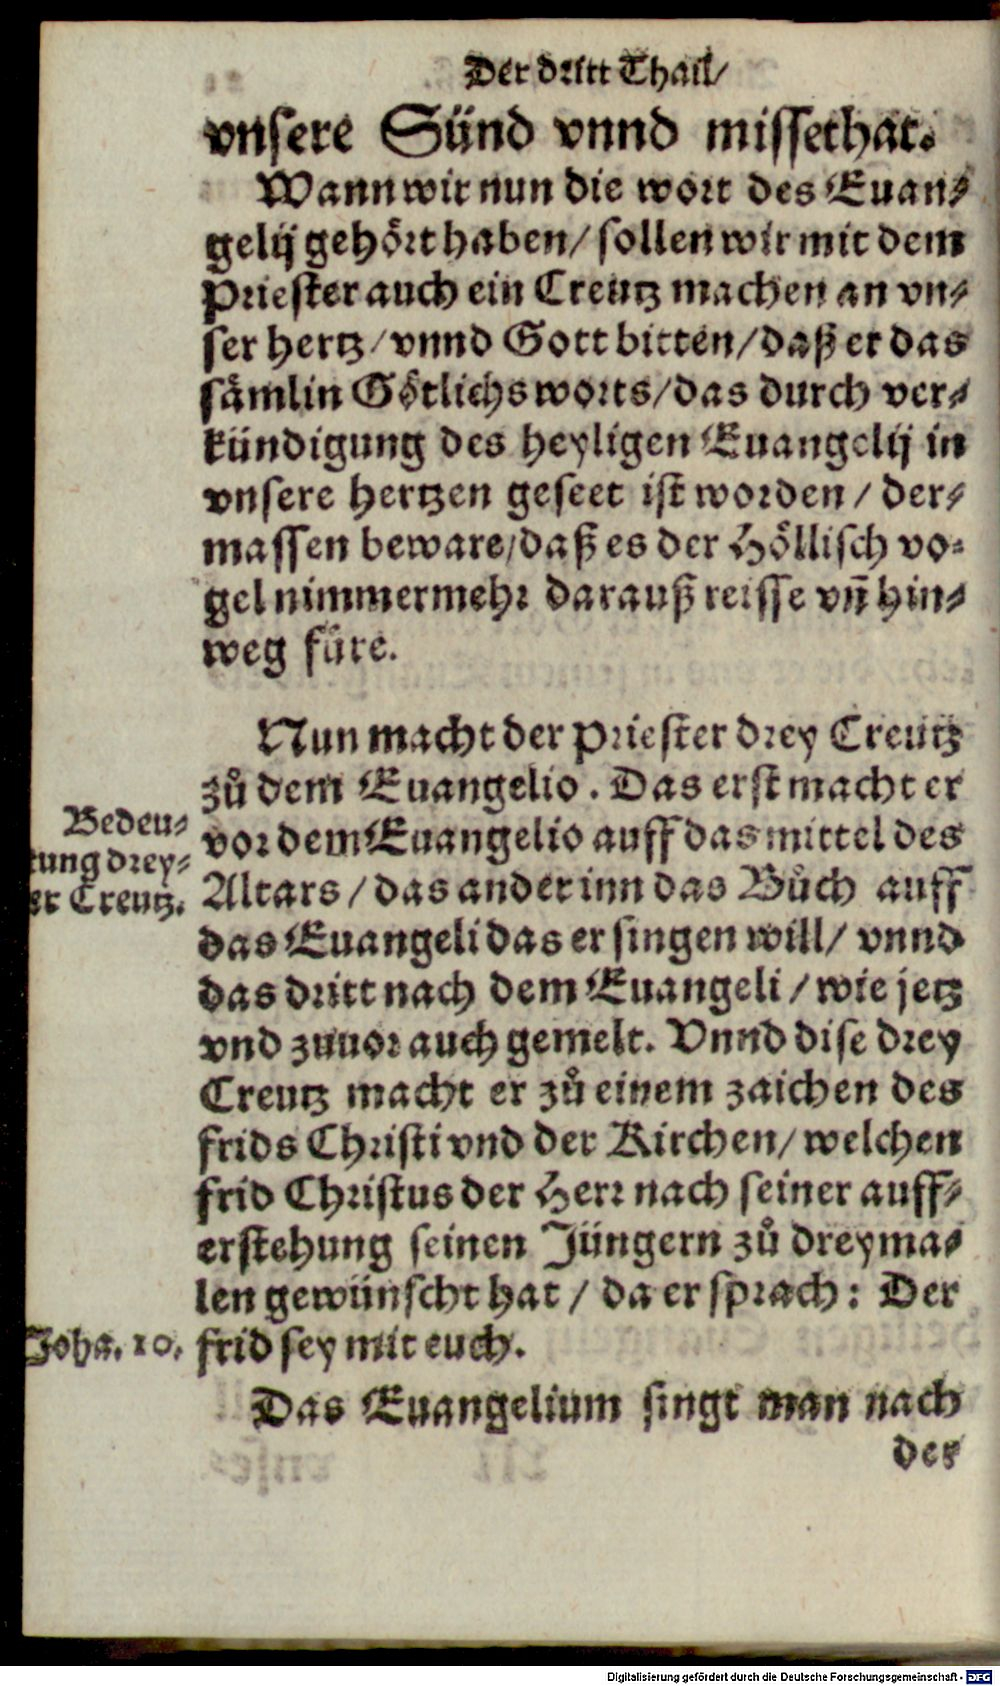 Der dritt Thail/
vnsere Sünd vnnd missethat.
Wann wir nun die wort des Euan⸗
gelij gehört haben/ sollen wir mit dem
Priester auch ein Creutz machen an vn⸗
ser hertz/ vnnd Gott bitten/ daß er das
sämlin Götlichs worts/ das durch ver⸗
kündigung des heyligen Euangelij in
vnsere hertzen geseet ist worden/ der⸗
massen beware/ daß es der Höllisch vo⸗
gel nimmermehr darauß reisse vñ hin⸗
weg füre.
Nun macht der Priester drey Creutz
zů dem Euangelio. Das erst macht er
vor dem Euangelio auff das mittel des
Altars/ das ander inn das Bůch auff
das Euangeli das er singen will/ vnnd
das dritt nach dem Euangeli/ wie jetz
vnd zuuor auch gemelt. Vnnd dise drey
Creutz macht er zů einem zaichen des
frids Christi vnd der Kirchen/ welchen
frid Christus der Herr nach seiner auff⸗
erstehung seinen Jüngern zů dreyma⸗
len gewünscht hat/ da er sprach: Der
frid sey mit euch.
Das Euangelium singt man nach
der
Bedeu⸗
tung drey⸗
er Creutz.
Joha. 20.
Digitalisierung gefördert durch die Deutsche Forschungsgemeinschaft - DFG